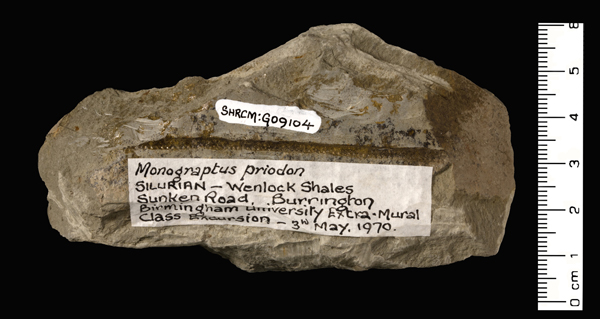 SHRCM:G09104
Monograptus priodon
SILURIAN - Wenlock Shales
Sunken Road, Burrington
Birmingham University Extra-Mural
Class Excursion - 3rd May, 1970.
8
5
4
3
2
1
0 cm